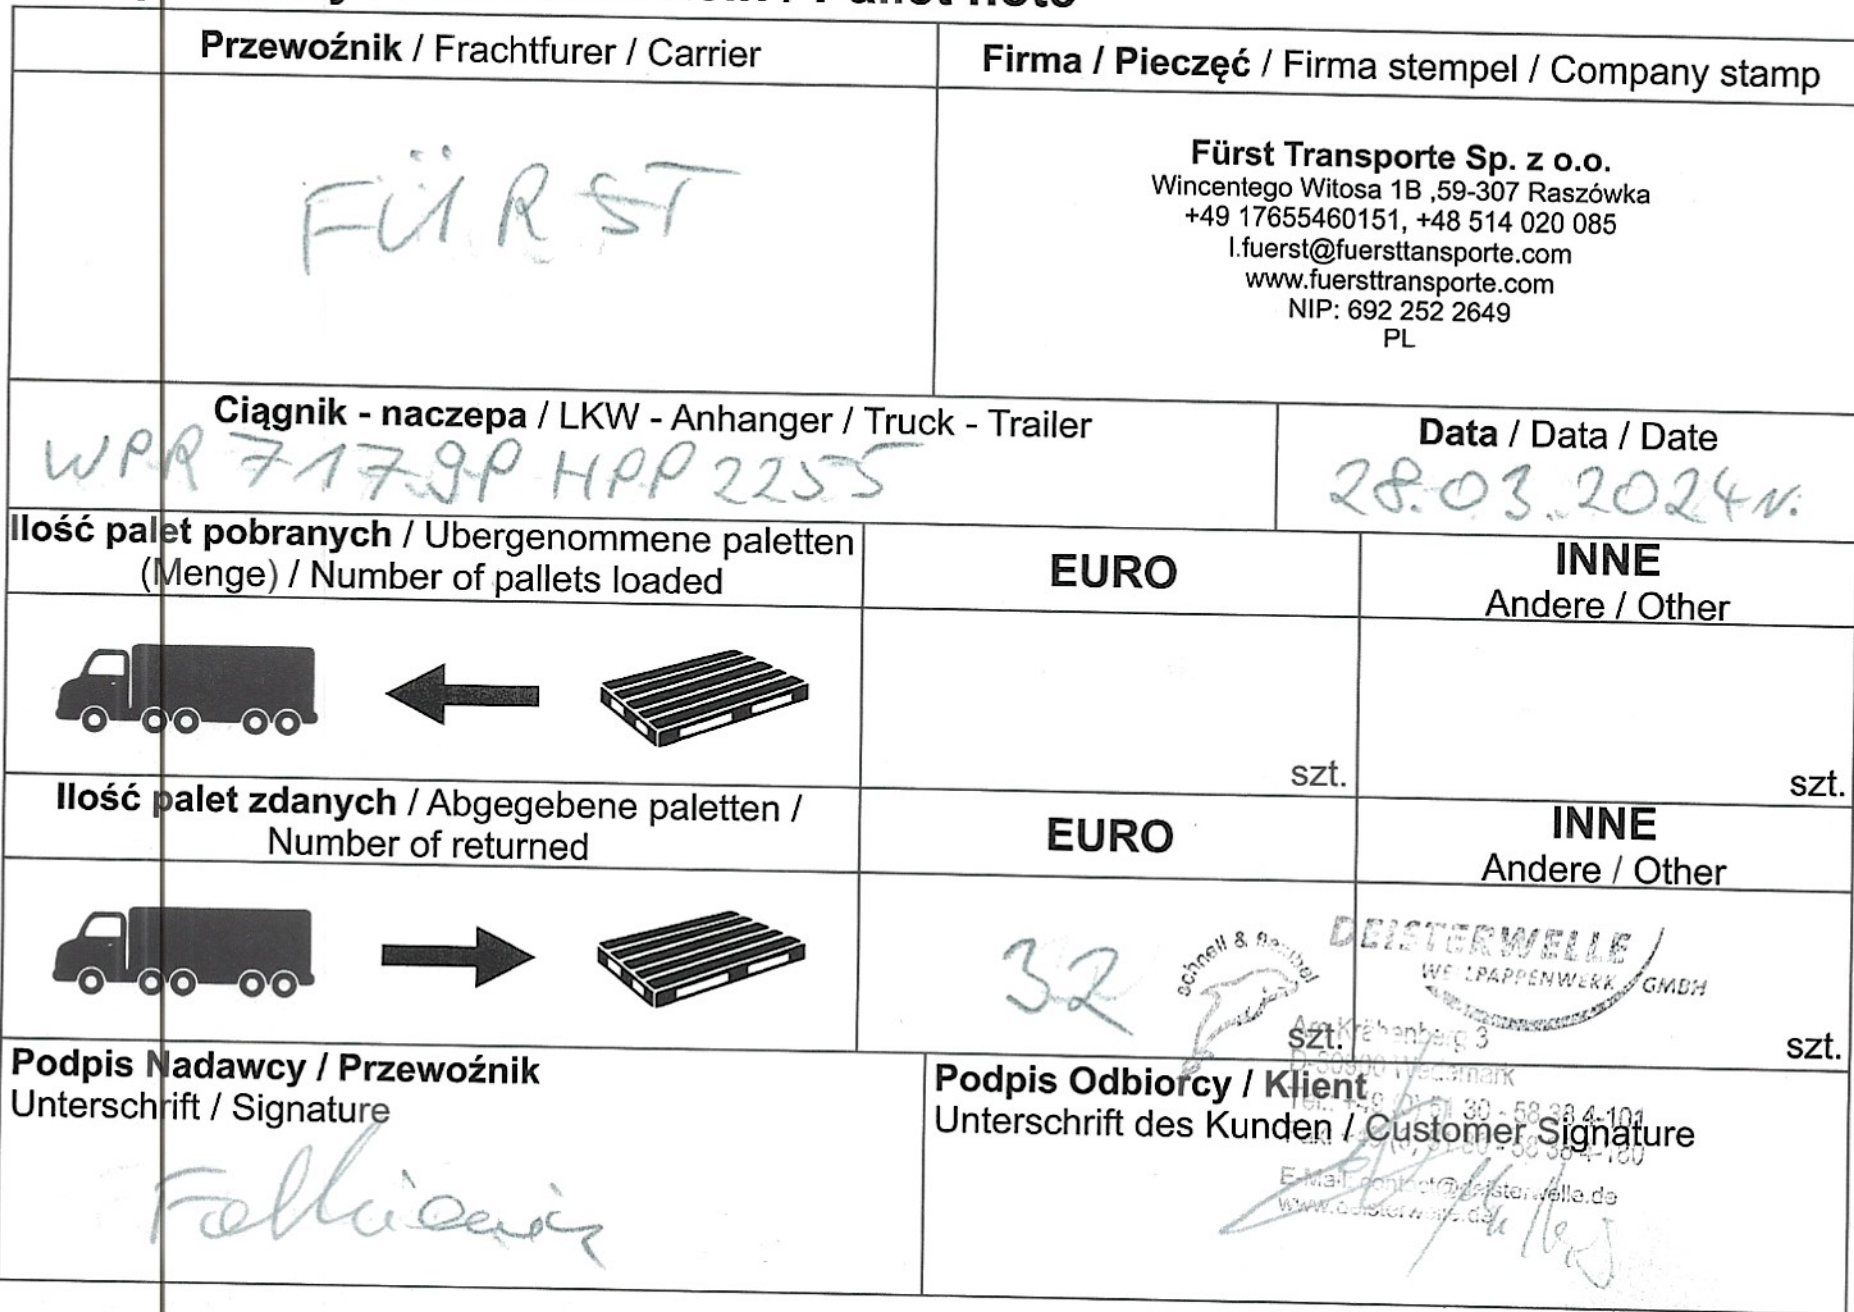 Pallet note
Przewoźnik / Frachtfurer / Carrier
Firma / Pieczęć / Firma stempel / Company stamp
FÜRST
Fürst Transporte Sp. z o.o.
Wincentego Witosa 1B ,59-307 Raszówka
+49 17655460151, +48 514 020 085
l.fuerst@fuersttansporte.com
www.fuersttransporte.com
NIP: 692 252 2649
PL
Ciągnik - naczepa / LKW - Anhanger / Truck - Trailer
WPR 7179P HPP 2255
Data / Data / Date
28.03.2024r.
Ilość palet pobranych / Ubergenommene paletten
(Menge) / Number of pallets loaded
EURO
INNE
Andere / Other
szt.
szt.
Ilość palet zdanych / Abgegebene paletten /
Number of returned
EURO
INNE
Andere / Other
32
szt.
szt.
schnell & flexibel
DEISTERWELLE
WELLPAPPENWERK GMBH
Am Krähenberg 3
D-30900 Wedemark
Tel.: +49 (0) 51 30 - 58 38 4-101
Fax: +49 (0) 51 30 - 58 38 4-180
E-Mail: contact@deisterwelle.de
www.deisterwelle.de
Podpis Nadawcy / Przewoźnik
Unterschrift / Signature
Podpis Odbiorcy / Klient
Unterschrift des Kunden / Customer Signature